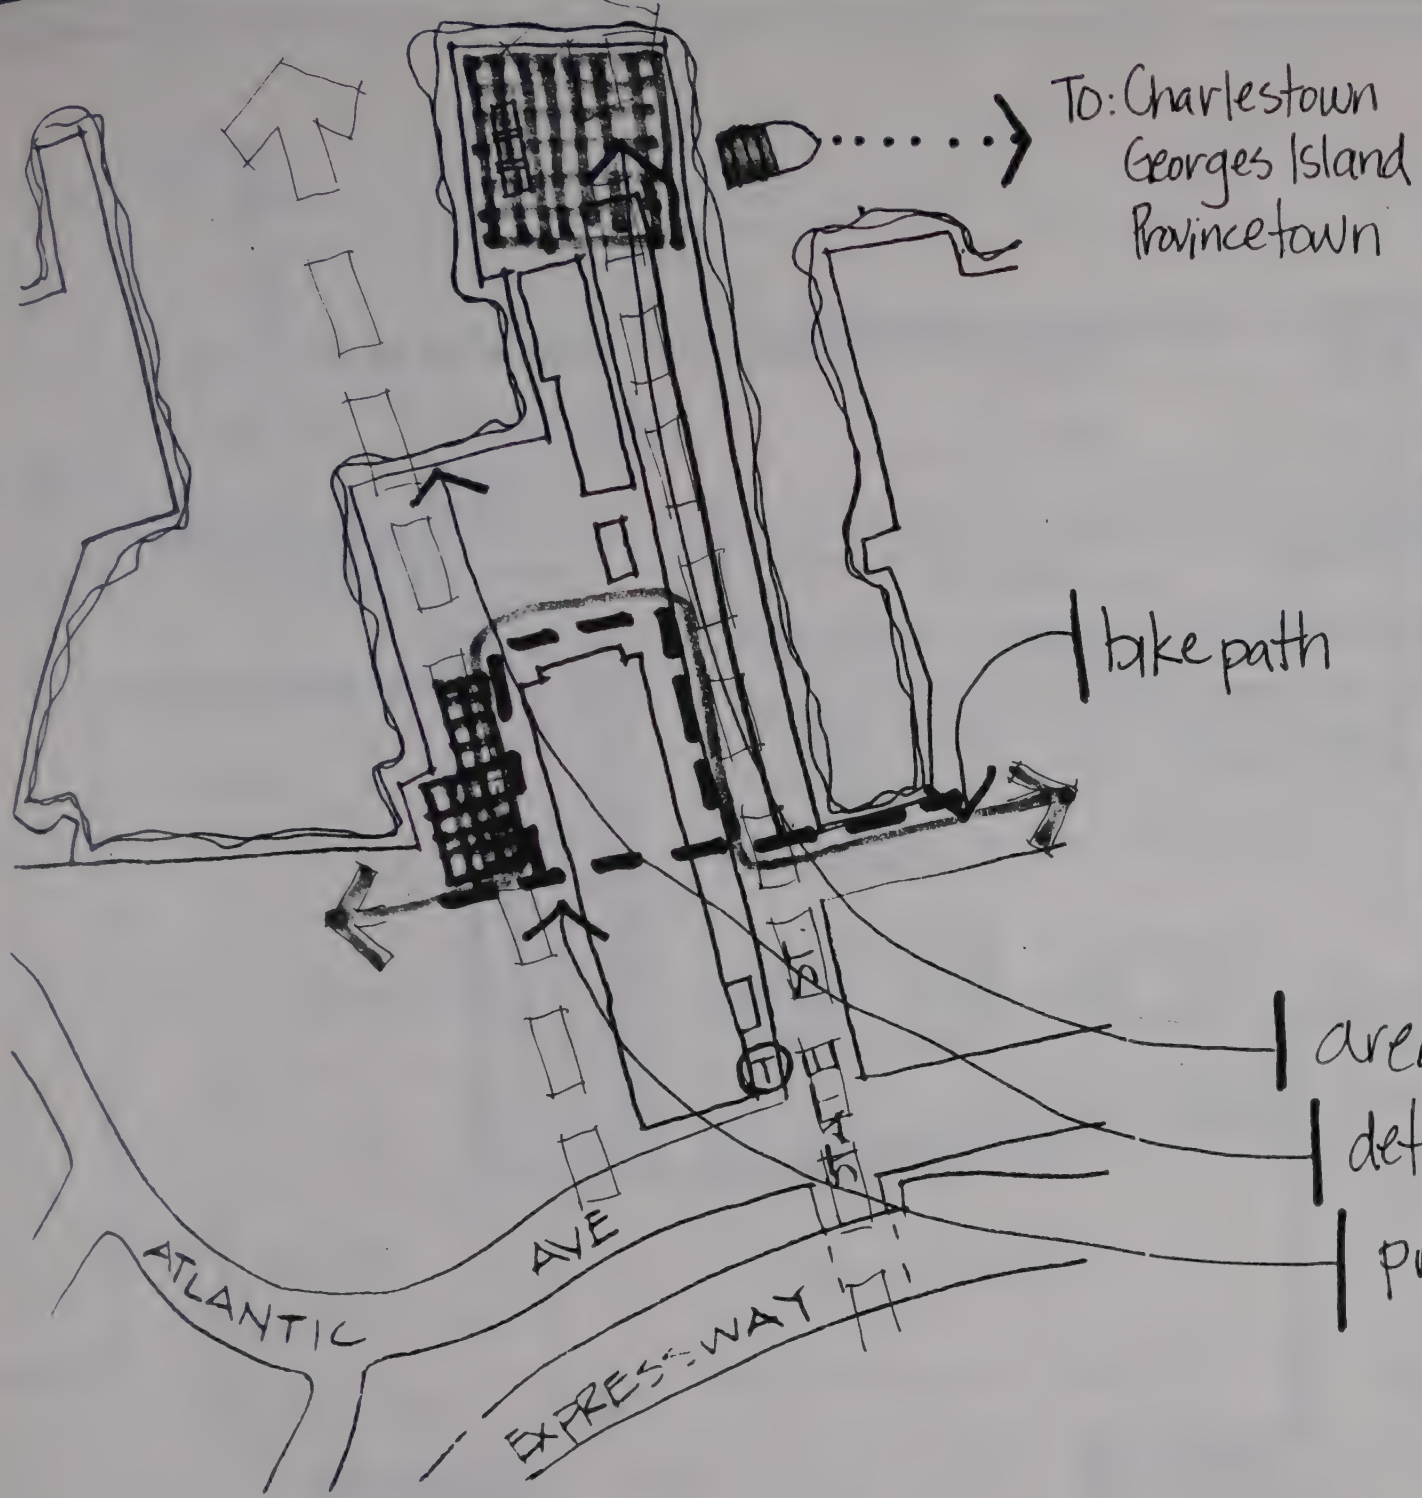 To: Charlestown
Georges Island
Provincetown
bike path
T
STATE ST.
ATLANTIC AVE
EXPRESSWAY